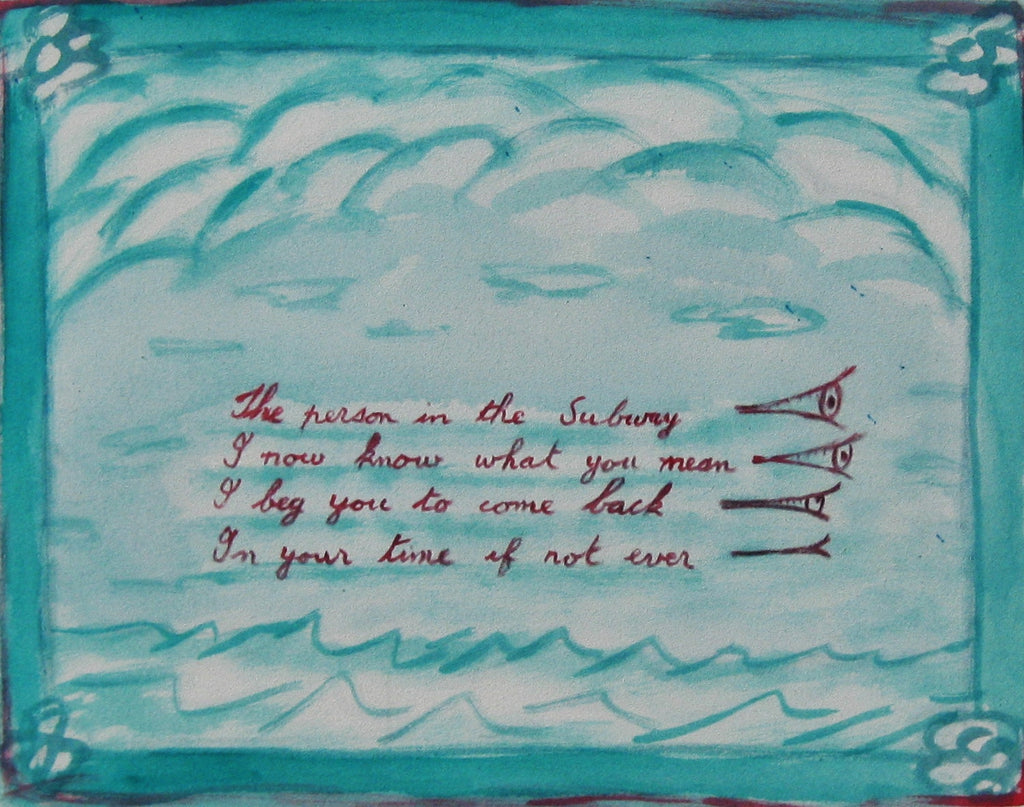 The person in the Subway
I now know what you mean
I beg you to come back
In your time if not ever